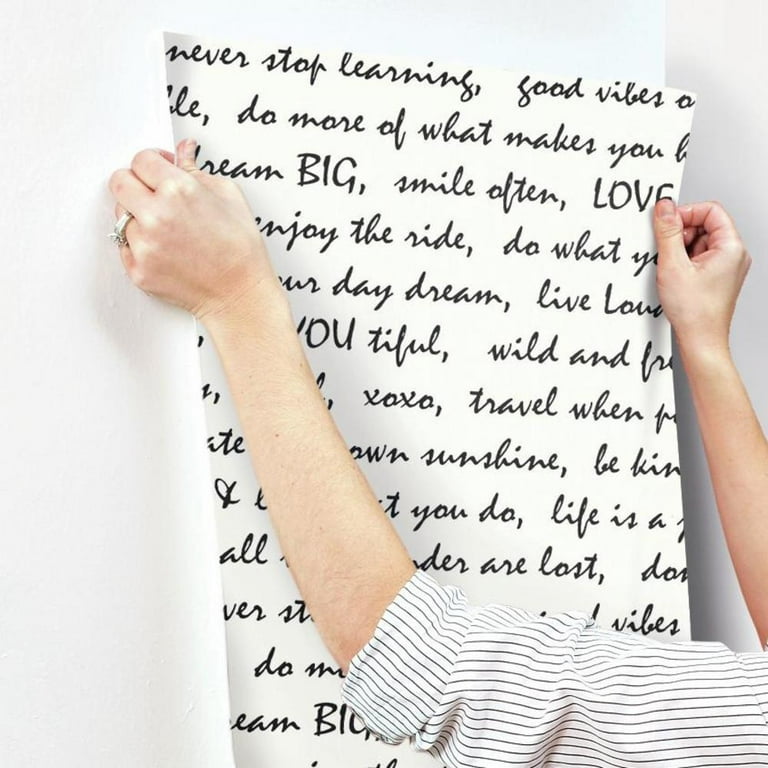 never stop learning, good vibes o
ble, do more of what makes you h
dream BIG, smile often, LOVE
enjoy the ride, do what yo
our day dream, live Loud
YOU tiful, wild and fre
xoxo, travel when p
ate own sunshine, be kin
& l t you do, life is a
all nder are lost, don
ver st d vibes
do mo
eam BIG,